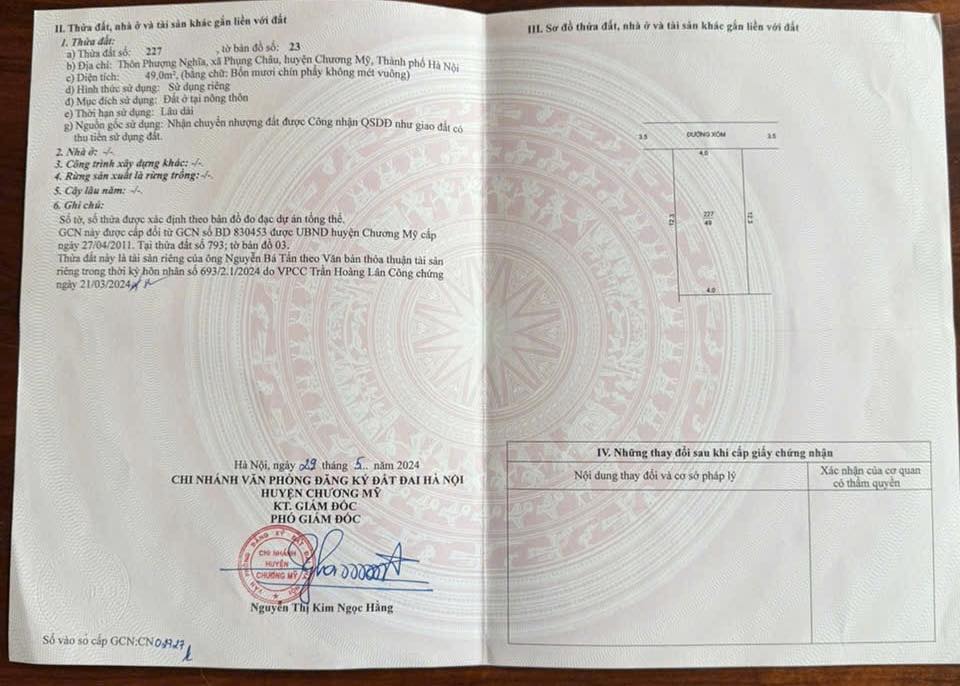 II. Thửa đất, nhà ở và tài sản khác gắn liền với đất
1. Thửa đất:
a) Thửa đất số: 227 , tờ bản đồ số: 23
b) Địa chỉ: Thôn Phượng Nghĩa, xã Phụng Châu, huyện Chương Mỹ, Thành phố Hà Nội
c) Diện tích: 49,0m², (bằng chữ: Bốn mươi chín phẩy không mét vuông)
d) Hình thức sử dụng: Sử dụng riêng
đ) Mục đích sử dụng: Đất ở tại nông thôn
e) Thời hạn sử dụng: Lâu dài
g) Nguồn gốc sử dụng: Nhận chuyển nhượng đất được Công nhận QSDĐ như giao đất có
thu tiền sử dụng đất.
2. Nhà ở: -/-.
3. Công trình xây dựng khác: -/-.
4. Rừng sản xuất là rừng trồng: -/-.
5. Cây lâu năm: -/-.
6. Ghi chú:
Số tờ, số thửa được xác định theo bản đồ đo đạc dự án tổng thể.
GCN này được cấp đổi từ GCN số BD 830453 được UBND huyện Chương Mỹ cấp
ngày 27/04/2011. Tại thửa đất số 793; tờ bản đồ 03.
Thửa đất này là tài sản riêng của ông Nguyễn Bá Tần theo Văn bản thỏa thuận tài sản
riêng trong thời kỳ hôn nhân số 693/2.1/2024 do VPCC Trần Hoàng Lân Công chứng
ngày 21/03/2024
Hà Nội, ngày 29 tháng 5.. năm 2024
CHI NHÁNH VĂN PHÒNG ĐĂNG KÝ ĐẤT ĐAI HÀ NỘI
HUYỆN CHƯƠNG MỸ
KT. GIÁM ĐỐC
PHÓ GIÁM ĐỐC
CHI NHÁNH
HUYỆN
CHƯƠNG MỸ
Nguyễn Thị Kim Ngọc Hằng
Số vào sổ cấp GCN:CN
III. Sơ đồ thửa đất, nhà ở và tài sản khác gắn liền với đất
3.5 ĐƯỜNG XÓM 3.5
4.0
12.3 227 12.3
49
4.0
IV. Những thay đổi sau khi cấp giấy chứng nhận
Nội dung thay đổi và cơ sở pháp lý
Xác nhận của cơ quan
có thẩm quyền